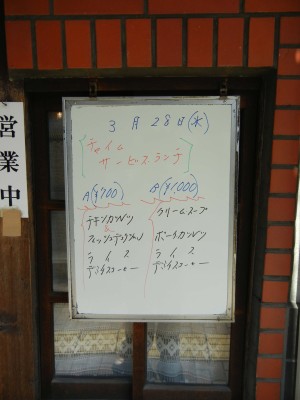 営業中
3月28日(水)
チャイム
サービスランチ
A(¥700)
チキンカツレツ
&
ライス
デミタスコーヒー
(¥1000)
クリームスープ
ポークカツレツ
ライス
デミタスコーヒー